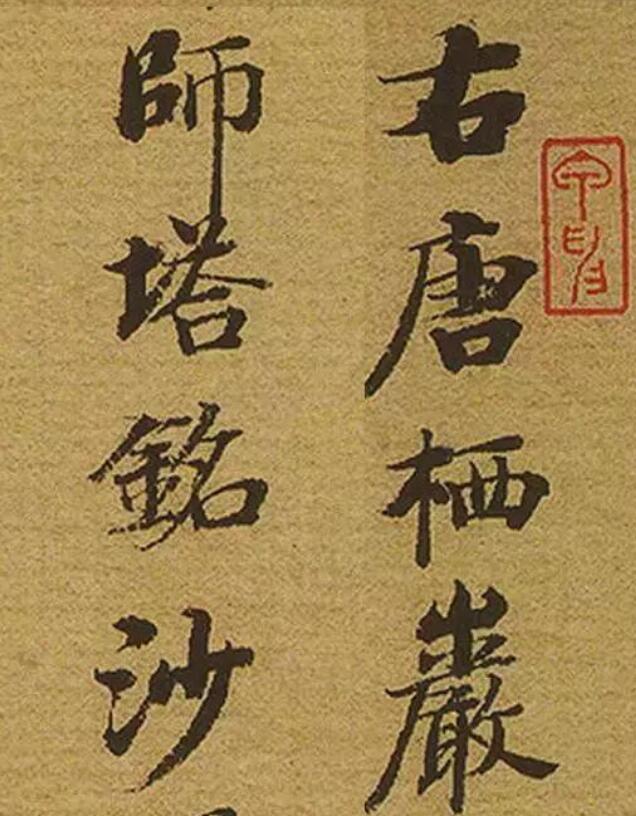 右唐栖巖
師塔銘沙